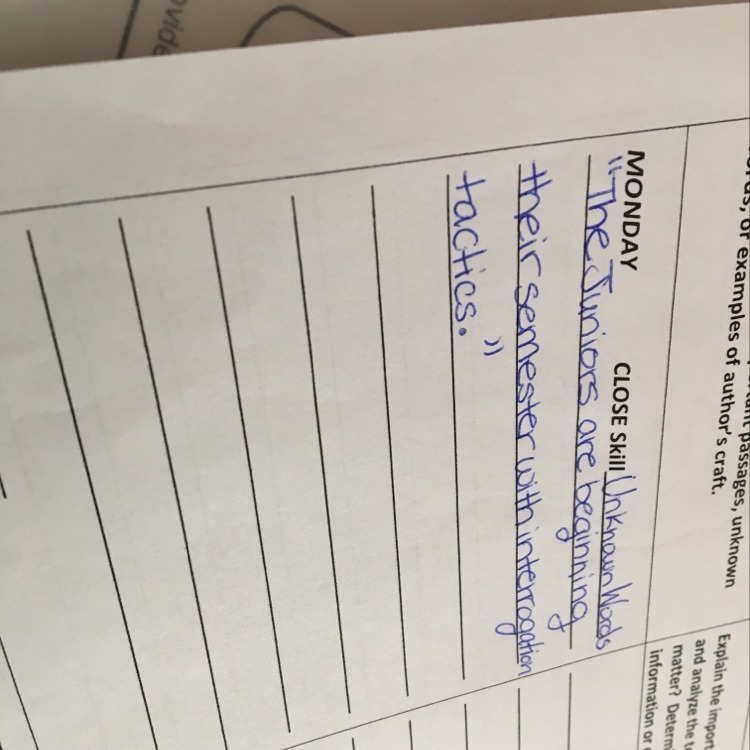 passages, unknown
or examples of author's craft.
MONDAY CLOSE Skill Unknown Words
"The Juniors are beginning
their semester with interrogation
tactics."
Explain the
and analyze the
matter?
information or